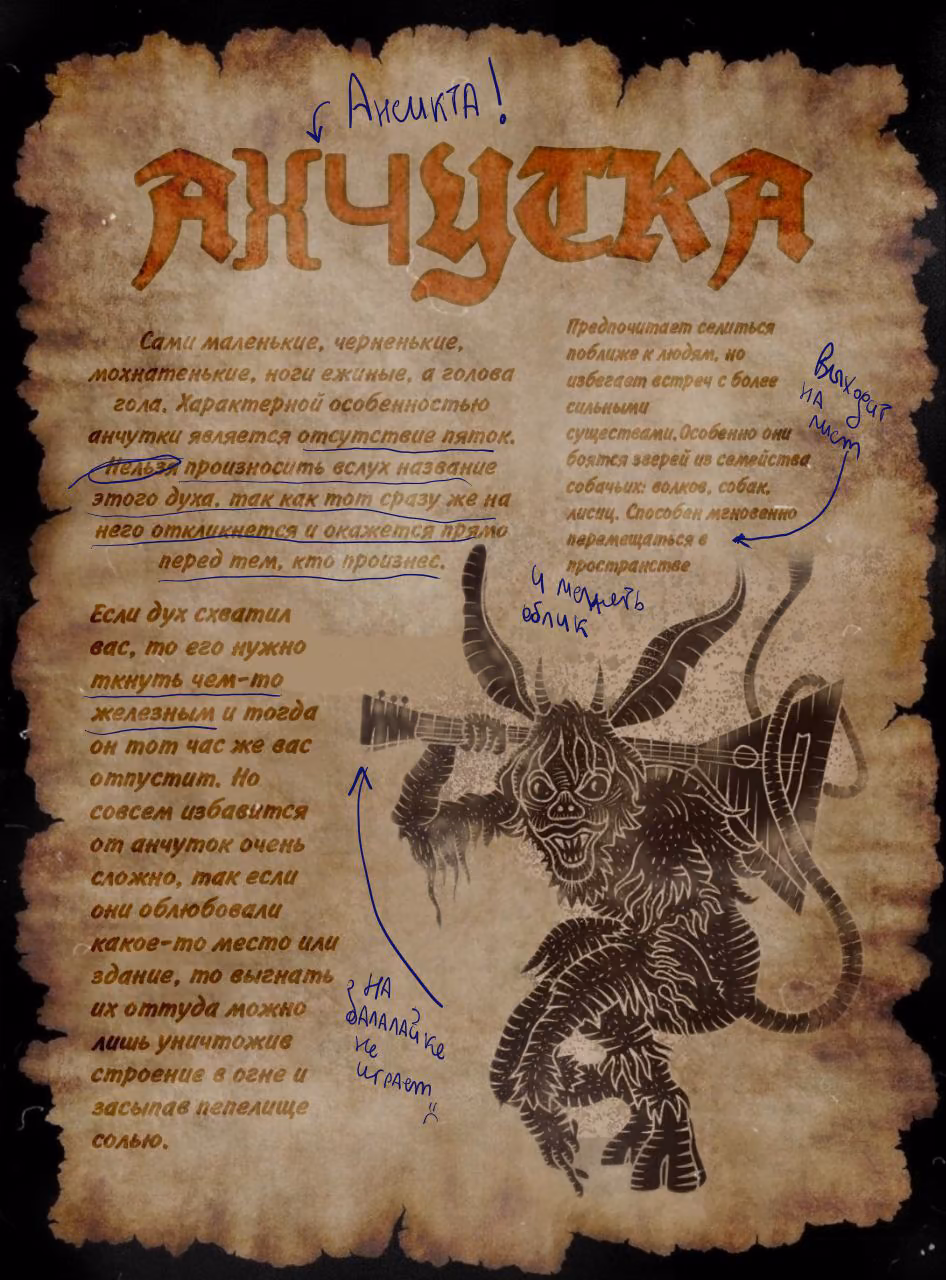 Ансикта!
АНЧУТКА
Сами маленькие, черненькие,
мохнатенькие, ноги ежиные, а голова
гола. Характерной особенностью
анчутки является отсутствие пяток.
Нельзя произносить вслух название
этого духа, так как тот сразу же на
него откликнется и окажется прямо
перед тем, кто произнес.
Предпочитает селиться
поближе к людям, но
избегает встреч с более
сильными
существами.Особенно они
боятся зверей из семейства
собачьих: волков, собак,
лисиц. Способен мгновенно
перемещаться в
пространстве
Выходит
на
лист
и менять
облик
Если дух схватил
вас, то его нужно
ткнуть чем-то
железным и тогда
он тот час же вас
отпустит. Но
совсем избавится
от анчуток очень
сложно, так если
они облюбовали
какое-то место или
здание, то выгнать
их оттуда можно
лишь уничтожив
строение в огне и
засыпав пепелище
солью.
на
балалайке
не
играет